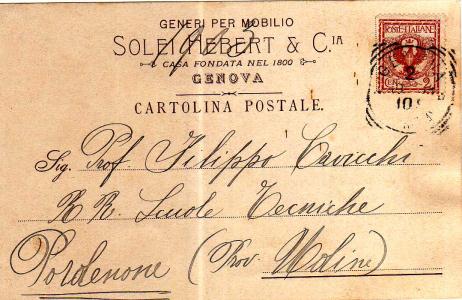 GENERI PER MOBILIO
SOLEI HEBERT & C.IA
CASA FONDATA NEL 1800
GENOVA
CARTOLINA POSTALE.
POSTE ITALIANE
2
Sig. Prof Filippo Cavicchi
RR. Scuole Tecniche
Pordenone (Prov Udine)